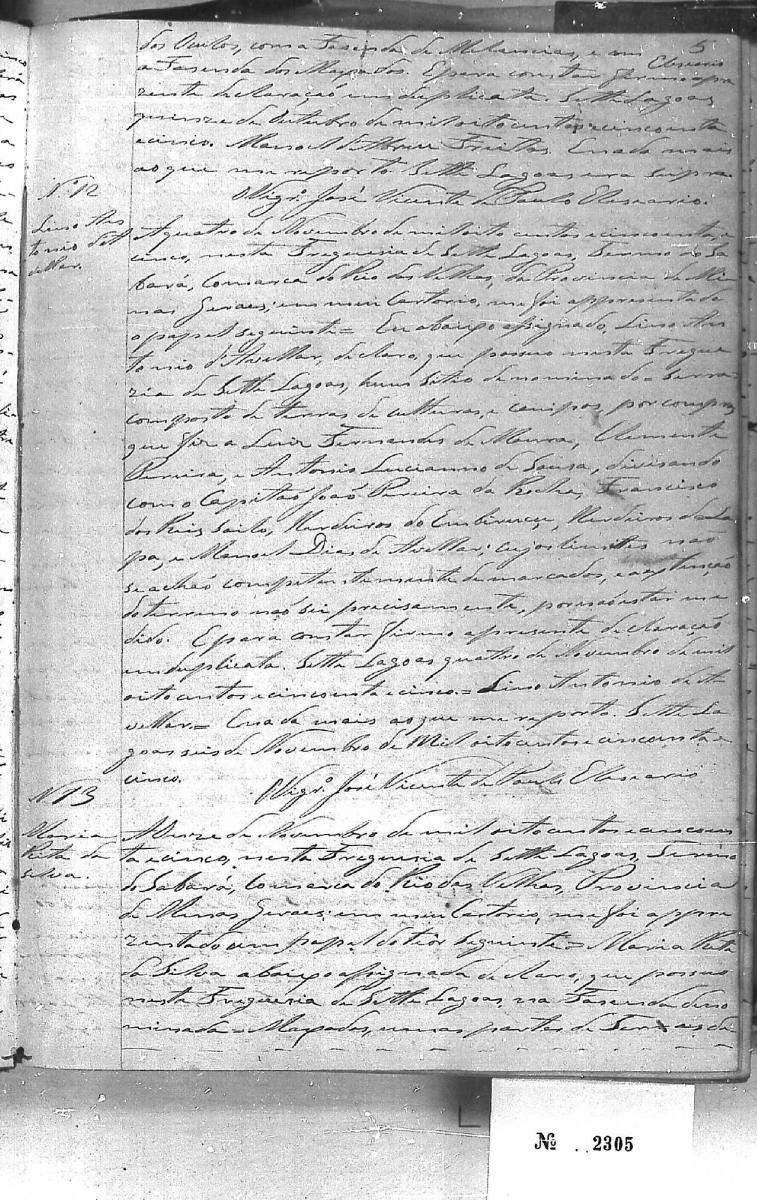 5
Eleuterio
dos Ocultos, com a Fazenda de Melancias, e com
a Fazenda dos Maxados. E para constar firmo a pre
zente declaração em duplicata. Sette Lagoas
quinze de Outubro de mil oito centos e cincoenta
e cinco. Manoel de Abreu Freitas. E nada mais
ao que me reporto Sette Lagoas era supra.
Vigr.º José Vicente de Paulo Eleuterio.
Nº 12
Lino An
tonio d'A
vellar.
A quatro de Novembro de mil oito centos e cincoenta e
cinco, nesta Freguesia de Sette Lagoas, Termo do Sa
bará, Comarca do Rio das Velhas, da Provincia de Mi
nas Geraes; em meu Cartorio, me foi appresentado
o papel seguinte = Eu abaixo assignado, Lino An
tonio d'Avellar, declaro, que possuo nesta Fregue
zia de Sette Lagoas, hum Sitio denominado = Serra =
composto de terras de culturas, e campos, por compra
que fiz a Luiz Fernandes de Moura, Clemente
Pereira, e Antonio Lucianno de Sousa, divisando
com o Capitaõ Joaõ Pereira da Rocha, Francisco
dos Reis, Herdeiros do Embiruçu, Herdeiros da La
pa, e Manoel Dias de Avellar; cujos limites naõ
se achaõ competentemente demarcados, e a extençaõ
do terreno naõ sei precisamente, por naõ estar me
dido. E para constar firmo a presente declaraçaõ
em duplicata. Sette Lagoas quatro de Novembro de mil
oito centos e cincoenta e cinco. = Lino Antonio de A
vellar = E nada mais ao que me reporto. Sette La
goas seis de Novembro de Mil oito centos e cincoenta e
cinco.
Vigr.º José Vicente de Paulo Eleuterio
Nº 13
Maria
Rita da
Silva.
de Novembro de mil oito centos e cincoen
ta e cinco, nesta Freguesia de Sette Lagoas, Termo
do Sabará, Comarca do Rio das Velhas, Provincia
de Minas Geraes; em meu Cartorio, me foi appre
zentado um papel do teôr seguinte = Maria Rita
da Silva abaixo assignada declaro, que possuo
nesta Freguezia de Sette Lagoas, na Fazenda deno
minada = Maxados, umas partes de Terras de
Nº 2305